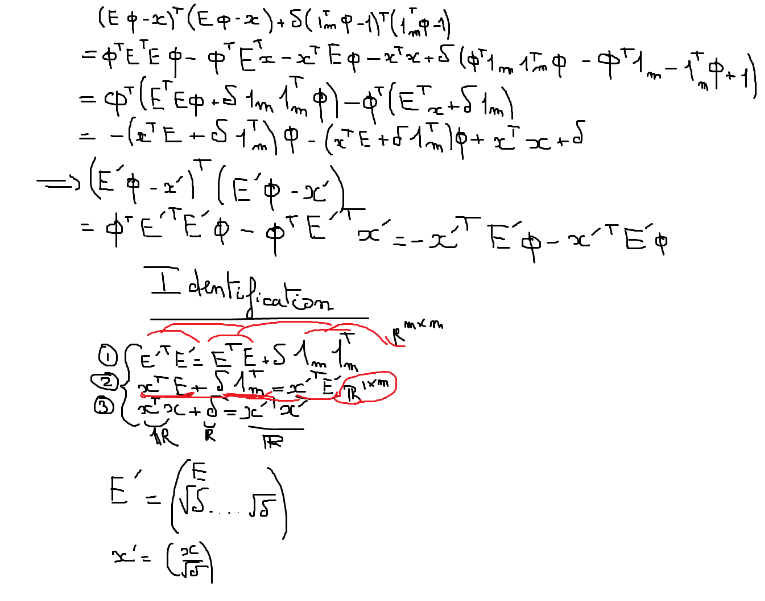 (Eϕ-x)ᵀ(Eϕ-x)+δ(1ₘᵀϕ-1)ᵀ(1ₘᵀϕ-1)
=ϕᵀEᵀEϕ-ϕᵀEᵀx-xᵀEϕ-xᵀx+δ(ϕᵀ1ₘ1ₘᵀϕ-ϕᵀ1ₘ-1ₘᵀϕ+1)
=ϕᵀ(EᵀEϕ+δ1ₘ1ₘᵀϕ)-ϕᵀ(Eᵀx+δ1ₘ)
=-(xᵀE+δ1ₘᵀ)ϕ-(xᵀE+δ1ₘᵀ)ϕ+xᵀx+δ
⟹(E′ϕ-x′)ᵀ(E′ϕ-x′)
=ϕᵀE′ᵀE′ϕ-ϕᵀE′ᵀx′=-x′ᵀE′ϕ-x′ᵀE′ϕ
Identification
ℝᵐˣᵐ
① E′ᵀE′=EᵀE+δ1ₘ1ₘᵀ
② xᵀE+δ1ₘᵀ=x′ᵀE′ ℝ¹ˣᵐ
③ xᵀx+δ=x′ᵀx′
ℝ ℝ ℝ
E
E′=(√δ....√δ)
x′=(x
√δ)